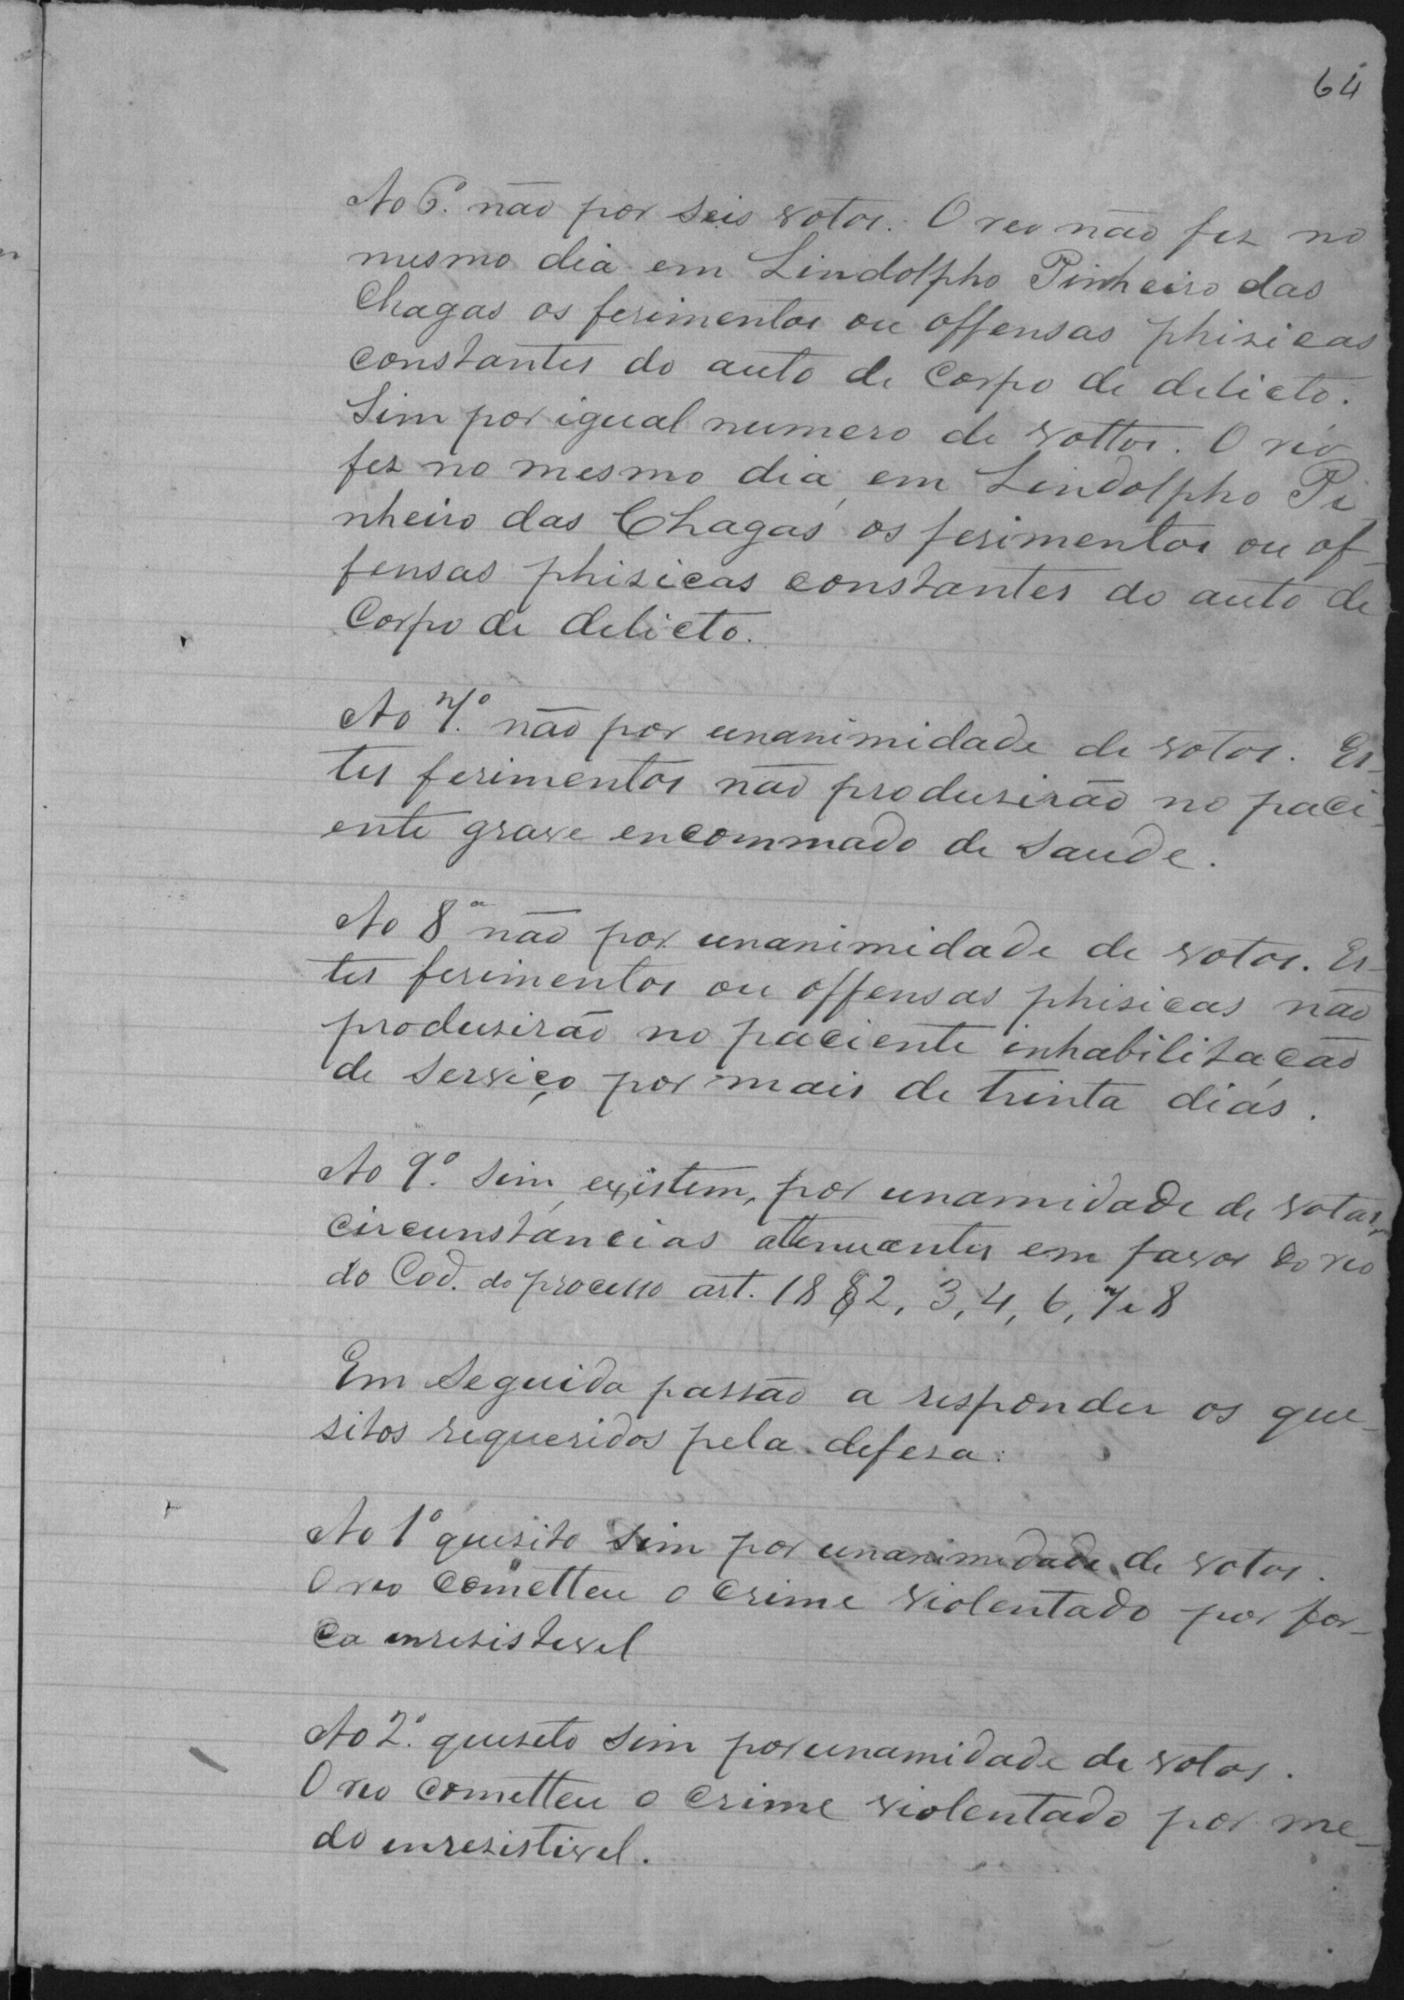 64
Ao 6º. não por seis votos. O reo não fez no
mesmo dia em Lindolpho Pinheiro das
Chagas os ferimentos ou offensas phisicas
constantes do auto de Corpo de delicto.
Sim por igual numero de vottos. O réo
fez no mesmo dia em Lindolpho Pi-
nheiro das Chagas os ferimentos ou of-
fensas phisicas constantes do auto de
Corpo de delicto.
Ao 7º. não por unanimidade de votos. Es-
tes ferimentos não produzirão no paci-
ente grave encommado de saude.
Ao 8º não por unanimidade de votos. Es-
tes ferimentos ou offensas phisicas não
produzirão no paciente inhabilitação
de serviço por mais de trinta dias.
Ao 9º. sim, existem, por unamidade de votos,
circunstancias attenuantes em favor do reo
do Cod. do processo art. 18 § 2, 3, 4, 6, 7 e 8
Em Seguida passão a responder os que-
sitos requeridos pela defesa:
Ao 1º quesito sim por unanimidade de votos.
O reo cometteu o crime violentado por for-
ca inresistevel
Ao 2º. quesito sim por unamidade de votos.
O reo cometteu o crime violentado por me-
do inresistivel.